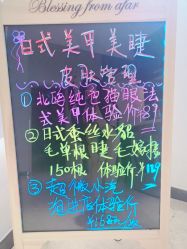 Blessing from afar
日式美甲美睫
皮肤管理
①北鸥纯色猫眼法
式美甲体验价89
②日式蚕丝水貂
毛单根睫毛
150根 体验价￥129
③超微小泡
体验价
￥58元